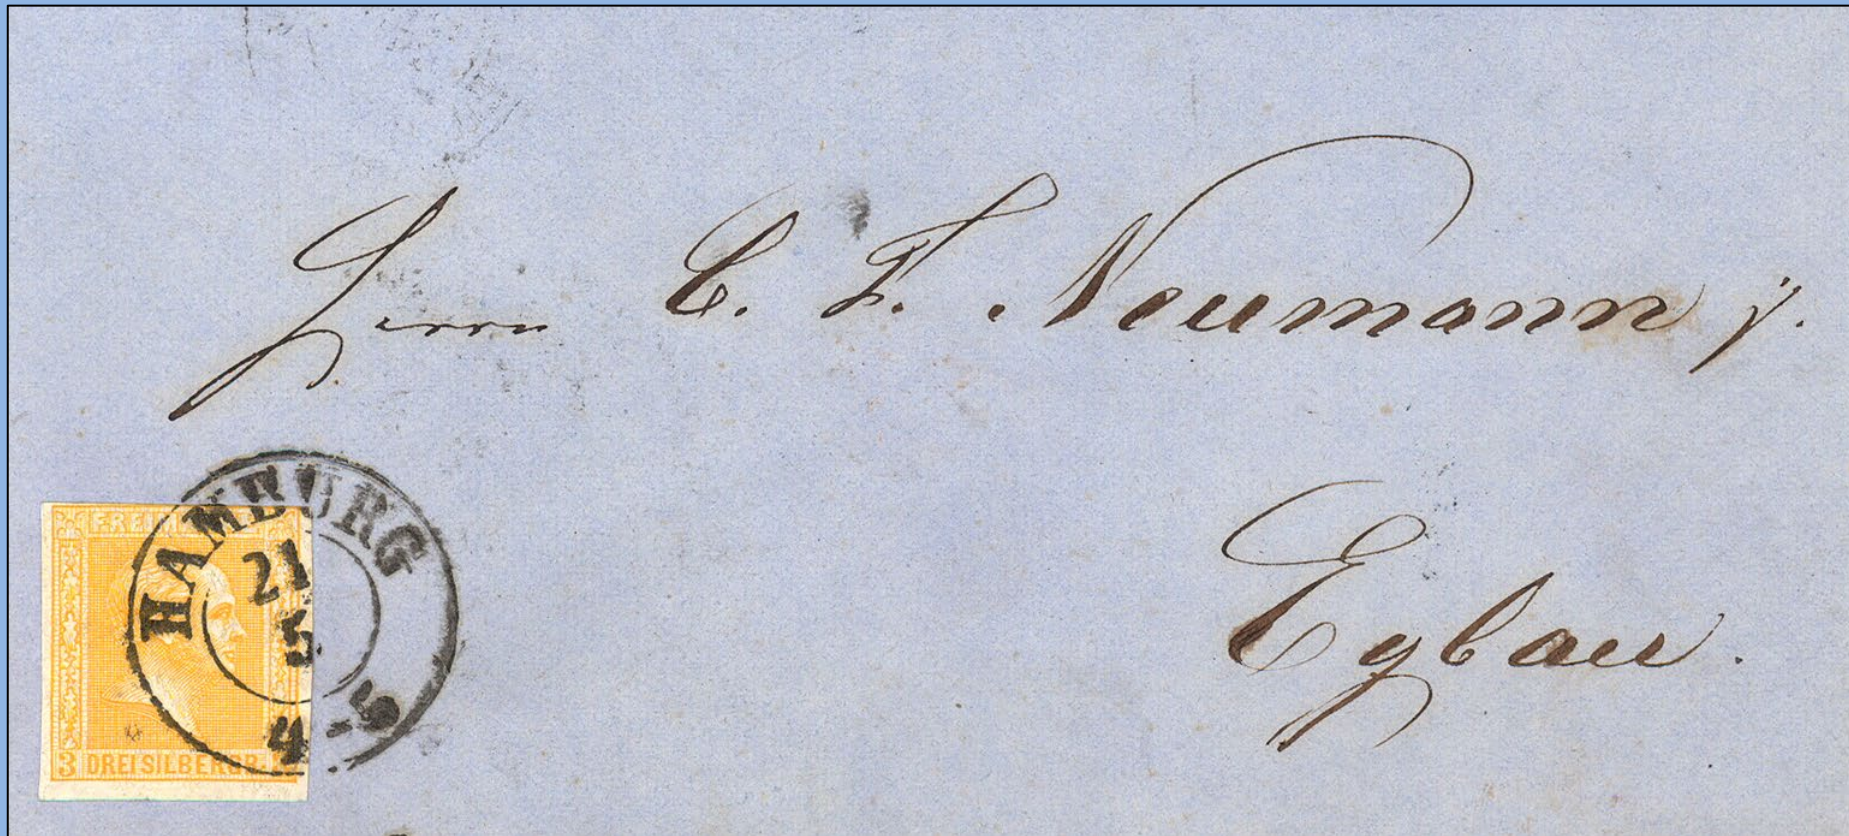 Herrn C. F. Neumann j.
Eylau.
HAMBURG
21
5
4-5
FREIM
3 DREI SILBERGR.